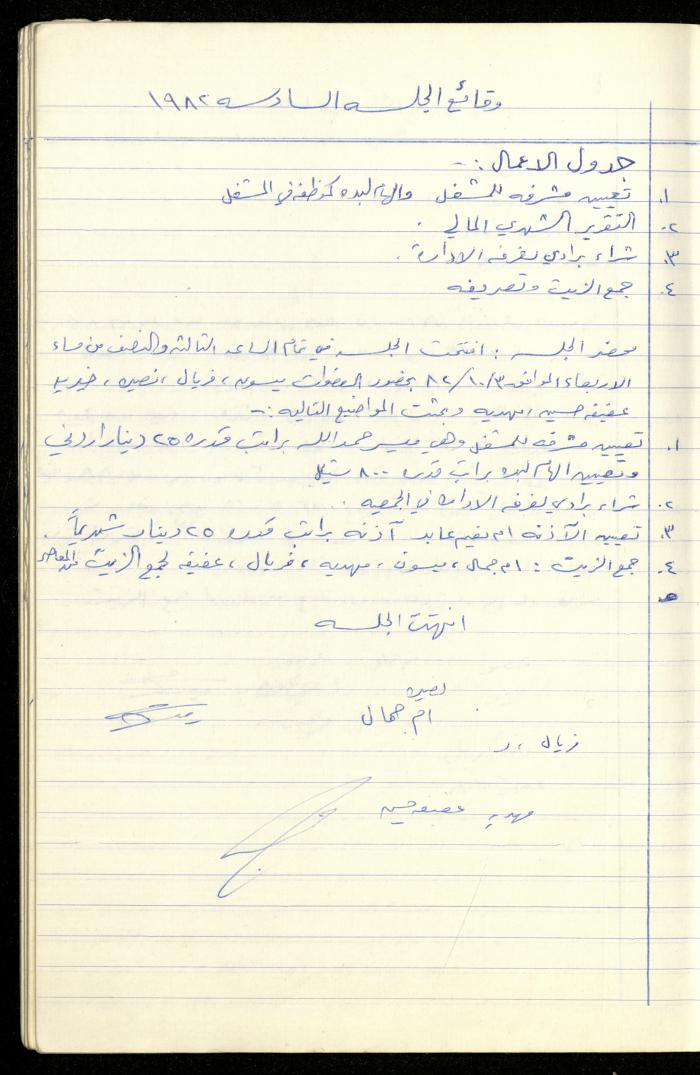 وقائع الجلسه السادسه ١٩٨٢
جدول الاعمال :-
١. تعيين مشرفه للمشغل والهام لبده كموظفه في المشغل
٢. التقرير الشهري المالي .
٣. شراء برادي لغرفه الادارة .
٤. جمع الزيت وتصريفه
محضر الجلسه : افتتحت الجلسه في تمام الساعه الثالثه والنصف من مساء
الاربعاء الموافق ٨٢/١٠/٣ بحضور العضوات ميسون ، فريال ، نصيره ،
عفيفه حسين ، مهديه وبحثت المواضيع التاليه :-
١. تعيين مشرفه للمشغل وهي ميسر حمدالله براتب قدره ٢٥ دينار اردني
وتعيين الهام لبده براتب قدره ٨٠٠ شيكل
٢. شراء برادي لغرفه الاداره في الجمعيه .
٣. تعيين الآذنه ام نعيم عابد آذنه براتب قدره ٢٥ دينار شهرياً .
٤. جمع الزيت : ام جمال ، ميسون ، مهديه ، فريال ، عفيفه لجمع الزيت من المعاصر
انتهت الجلسه
نصيره
ام جمال
فريال . ر
مهديه عفيفه حسين